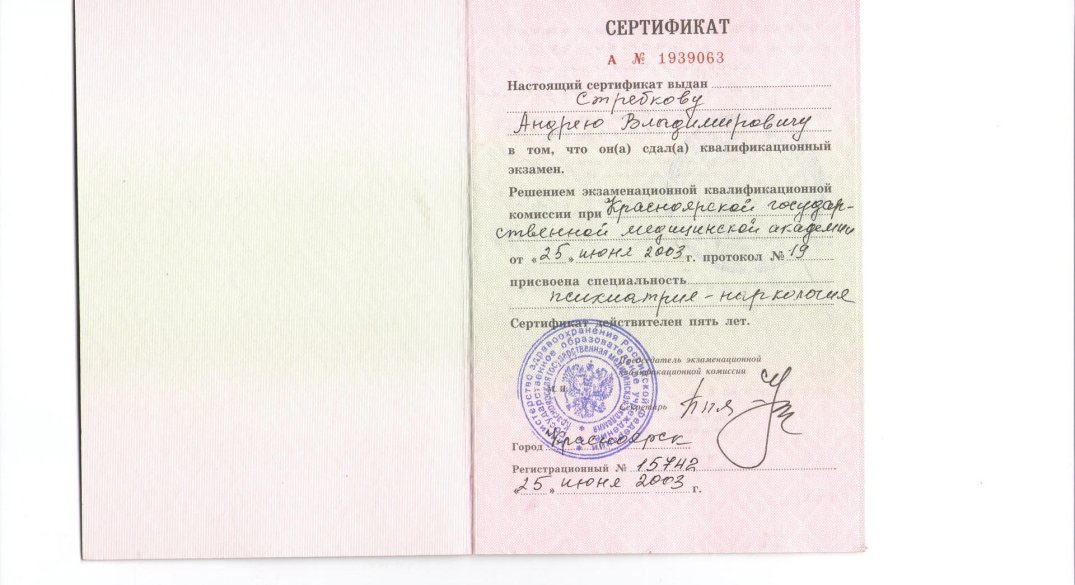 СЕРТИФИКАТ
А № 1939063
Настоящий сертификат выдан
Стребкову
Андрею Владимировичу
в том, что он(а) сдал(а) квалификационный
экзамен.
Решением экзаменационной квалификационной
комиссии при Красноярской государ-
ственной медицинской академии
от «25» июня 2003 г. протокол № 19
присвоена специальность
психиатрия-наркология
Сертификат действителен пять лет.
Председатель экзаменационной
квалификационной комиссии
М. П.
Секретарь
Город Красноярск
Регистрационный № 15742
«25» июня 2003 г.